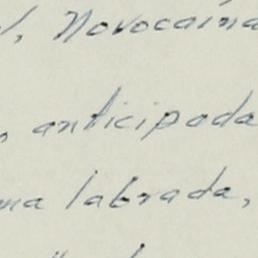 , Novocaína
, anticipada
labrada,